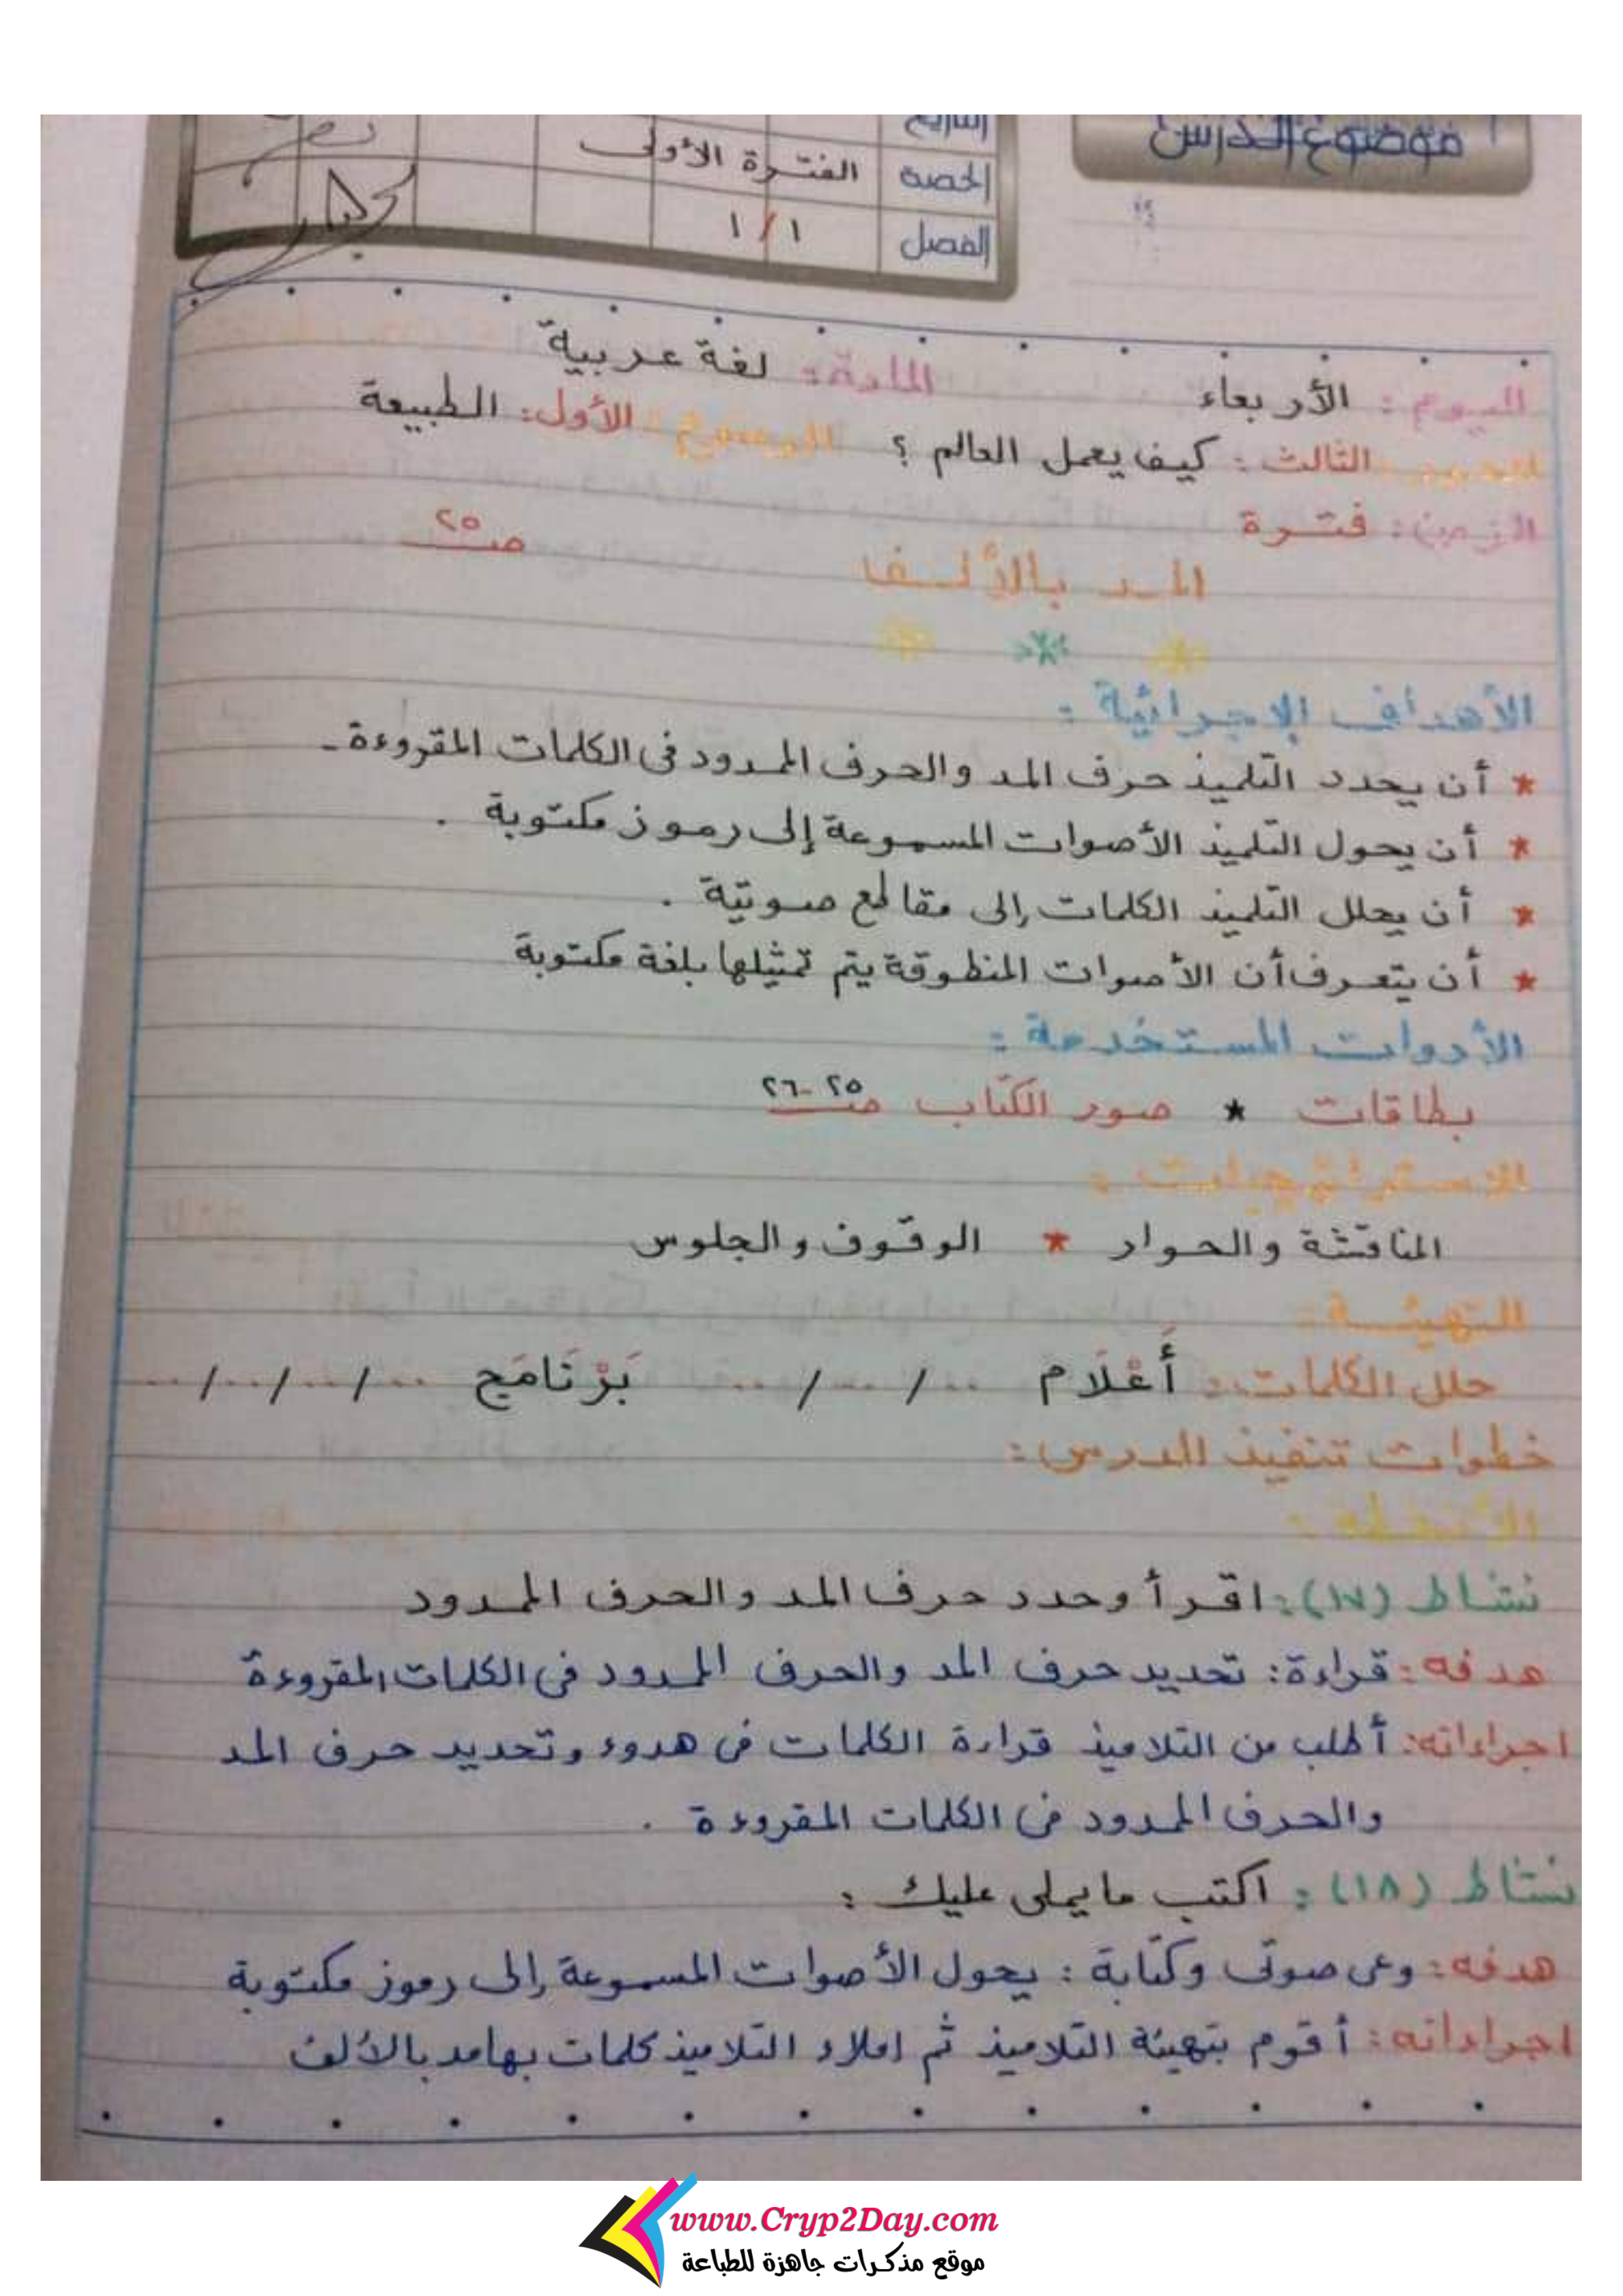 موضوع الدرس
التاريخ
الحصة الفترة الأولى
الفصل ١/١
اليوم : الأربعاء المادة : لغة عربية
المحور الثالث : كيف يعمل العالم ؟ الموضوع الأول : الطبيعة
الزمن : فترة
المد بالألف صـ ٢٥
الأهداف الإجرائية :
* أن يحدد التلميذ حرف المد والحرف الممدود فى الكلمات المقروءة -
* أن يحول التلميذ الأصوات المسموعة إلى رموز مكتوبة .
* أن يحلل التلميذ الكلمات إلى مقاطع صوتية .
* أن يتعرف أن الأصوات المنطوقة يتم تمثيلها بلغة مكتوبة
الأدوات المستخدمة :
بطاقات * صور الكتاب صـ ٢٥-٢٦
الاستراتيجيات :
المناقشة والحوار * الوقوف والجلوس
التهيئة :
حلل الكلمات : أَعْلَام ../../.. بَرْنَامَج ../../../..
خطوات تنفيذ الدرس :
الأنشطة :
نشاط (١٧) : اقرأ وحدد حرف المد والحرف الممدود
هدفه : قراءة : تحديد حرف المد والحرف الممدود فى الكلمات المقروءة
اجراءاته : أطلب من التلاميذ قراءة الكلمات فى هدوء وتحديد حرف المد
والحرف الممدود فى الكلمات المقروءة .
نشاط (١٨) : اكتب ما يملى عليك :
هدفه : وعى صوتى وكتابة : يحول الأصوات المسموعة إلى رموز مكتوبة
اجراءاته : أقوم بتهيئة التلاميذ ثم املاء التلاميذ كلمات بها مد بالألف
www.Cryp2Day.com
موقع مذكرات جاهزة للطباعة